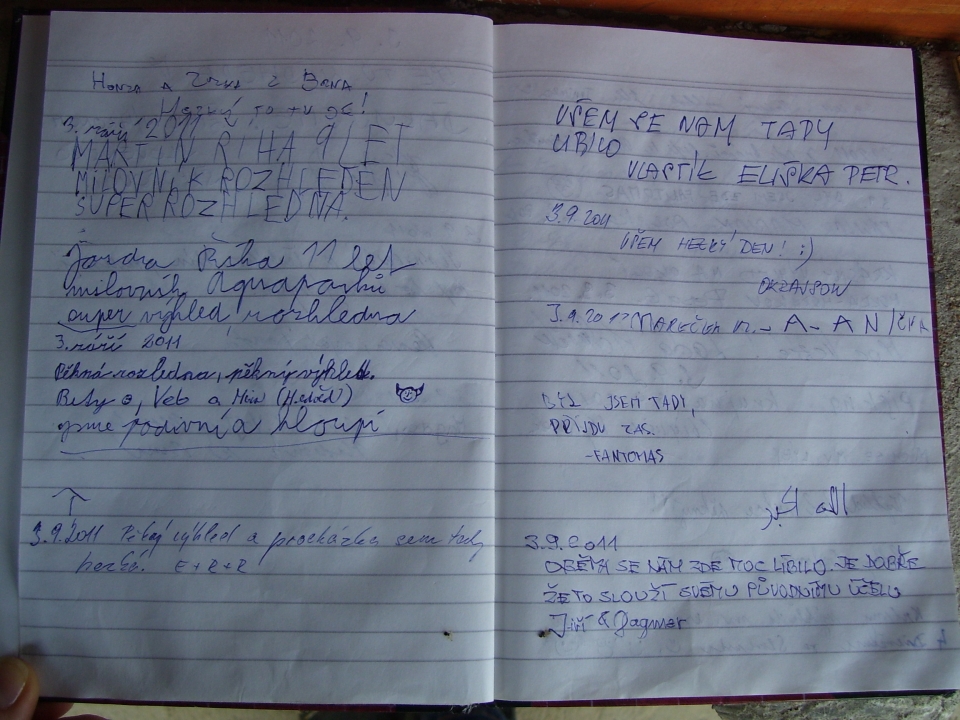 HONZA A Z BRNA
HEZKÝ TO TU JE!
3. září 2011
MARTIN ŘÍHA 9 LET
MILOVNÍK ROZHLEDEN
SUPER ROZHLEDNA.
Jandra Říha 11 let
milovník Aquaparků
super výhled, rozhledna
3. září 2011
Pěkná rozledna, pěkný výhled.
a
jsme podivní a hloupí
3.9.2011 Pěkný výhled a procházka sem tady
hezká. E+R+R
VŠEM SE NÁM TADY
LÍBILO
VLASTÍK ELIŠKA PETR.
3.9.2011
VŠEM HEZKÝ DEN! :)
3.9.2011 A - A N
BYL JSEM TADY,
PŘIJDU ZAS.
-FANTOMAS
الله اكبر
3.9.2011
OBĚMA SE NÁM ZDE MOC LÍBILO. JE DOBŘE
ŽE TO SLOUŽÍ SVÉMU PŮVODNÍMU ÚČELU
Jiří & Dagmar